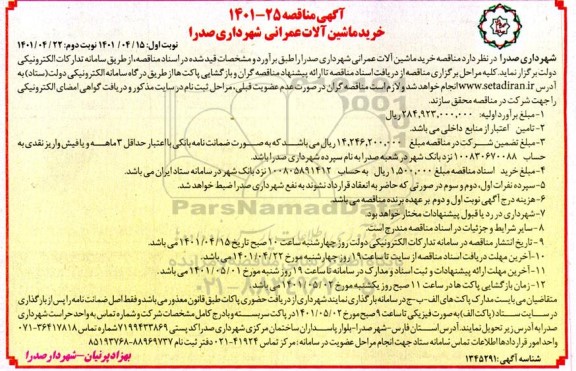 آگهی مناقصه ۲۵-۱۴۰۱
خرید ماشین آلات عمرانی شهرداری صدرا
نوبت اول: ۱۵ /۱۴۰۱/۰۴ نوبت دوم: ۲۲ /۱۴۰۱/۰۴
شهرداری صدرا در نظر دارد مناقصه خرید ماشین آلات عمرانی شهرداری صدرا را طبق برآورد و مشخصات قید شده در اسناد مناقصه، از طریق سامانه تدارکات الکترونیکی
دولت برگزار نماید. کلیه مراحل برگزاری مناقصه از دریافت اسناد مناقصه تا ارائه پیشنهاد مناقصه گران و بازگشایی پاکت ها از طریق درگاه سامانه الکترونیکی دولت (ستاد) به
آدرس www.setadiran.ir انجام خواهد شد و لازم است مناقصه گران در صورت عدم عضویت قبلی، مراحل ثبت نام در سایت مذکور و دریافت گواهی امضای الکترونیکی
را جهت شرکت در مناقصه محقق سازند.
۱- مبلغ برآورد اولیه: ۲۸۴,۹۲۳,۰۰۰,۰۰۰ ریال
۲- تامین اعتبار از منابع داخلی می باشد.
۳- مبلغ تضمین شرکت در مناقصه مبلغ ۱۴,۲۴۶,۲۰۰,۰۰۰ ریال می باشد که به صورت ضمانت نامه بانکی با اعتبار حداقل ۳ ماهه و یا فیش واریز نقدی به
حساب ۱۰۰۸۳۰۶۷۰۰۸۸ نزد بانک شهر در شعبه صدرا به نام سپرده شهرداری صدرا باشد.
۴- مبلغ خرید اسناد مناقصه مبلغ ۱,۵۰۰,۰۰۰ ریال به حساب ۱۰۰۸۰۵۸۹۱۴۱۲ نزد بانک شهر در سامانه ستاد ایران می باشد.
۵- سپرده نفرات اول، دوم و سوم در صورتی که حاضر به انعقاد قرارداد نشوند به نفع شهرداری صدرا ضبط خواهد شد.
۶- هزینه درج آگهی نوبت اول و دوم بر عهده برنده مناقصه می باشد.
۷- شهرداری در رد یا قبول پیشنهادات مختار خواهد بود.
۸- سایر شرایط و جزئیات در اسناد مناقصه مندرج است.
۹- تاریخ انتشار مناقصه در سامانه تدارکات الکترونیکی دولت روز چهارشنبه ساعت ۱۰ صبح تاریخ ۱۴۰۱/۰۴/۱۵ می باشد.
۱۰- آخرین مهلت دریافت اسناد مناقصه از سایت تا ساعت ۱۹ روز چهارشنبه مورخ ۱۴۰۱/۰۴/۲۲ می باشد.
۱۱- آخرین مهلت ارائه پیشنهادات و ثبت اسناد و مدارک در سامانه تا ساعت ۱۹ روز شنبه مورخ ۱۴۰۱/۰۵/۰۱ می باشد.
۱۲- زمان بازگشایی پاکت ها در ساعت ۱۱ صبح روز یکشنبه مورخ ۱۴۰۱/۰۵/۰۲ می باشد.
متقاضیان می بایست مدارک پاکت های الف-ب-ج در سامانه بارگذاری نمایند شهرداری از دریافت حضوری پاکات طبق قانون معذور می باشد و فقط اصل ضمانت نامه را پس از بارگذاری
در سایت ستاد (پاکت الف) به صورت فیزیکی تا ساعت ۹ صبح مورخ ۱۴۰۱/۰۵/۰۲ در پاکت سربسته و با درج کامل مشخصات شرکت و شماره تماس به واحد حراست شهرداری
صدرا به آدرس زیر تحویل نمایند. آدرس استان فارس -شهر صدرا-بلوار پاسداران ساختمان مرکزی شهرداری صدرا کد پستی ۷۱۹۹۴۳۳۸۶۹ شماره تماس ۳۶۴۱۷۸۱۸-۰۷۱
واحد امور قراردادها اطلاعات تماس سامانه ستاد جهت انجام مراحل عضویت در سامانه: مرکز تماس ۴۱۹۳۴-۰۲۱ دفتر ثبت نام ۸۸۹۶۹۷۳۷ - ۸۵۱۹۳۷۶۸
شناسه آگهی: ۱۳۴۵۲۹۱
بهزاد پرنیان- شهردار صدرا
ParsNamadData